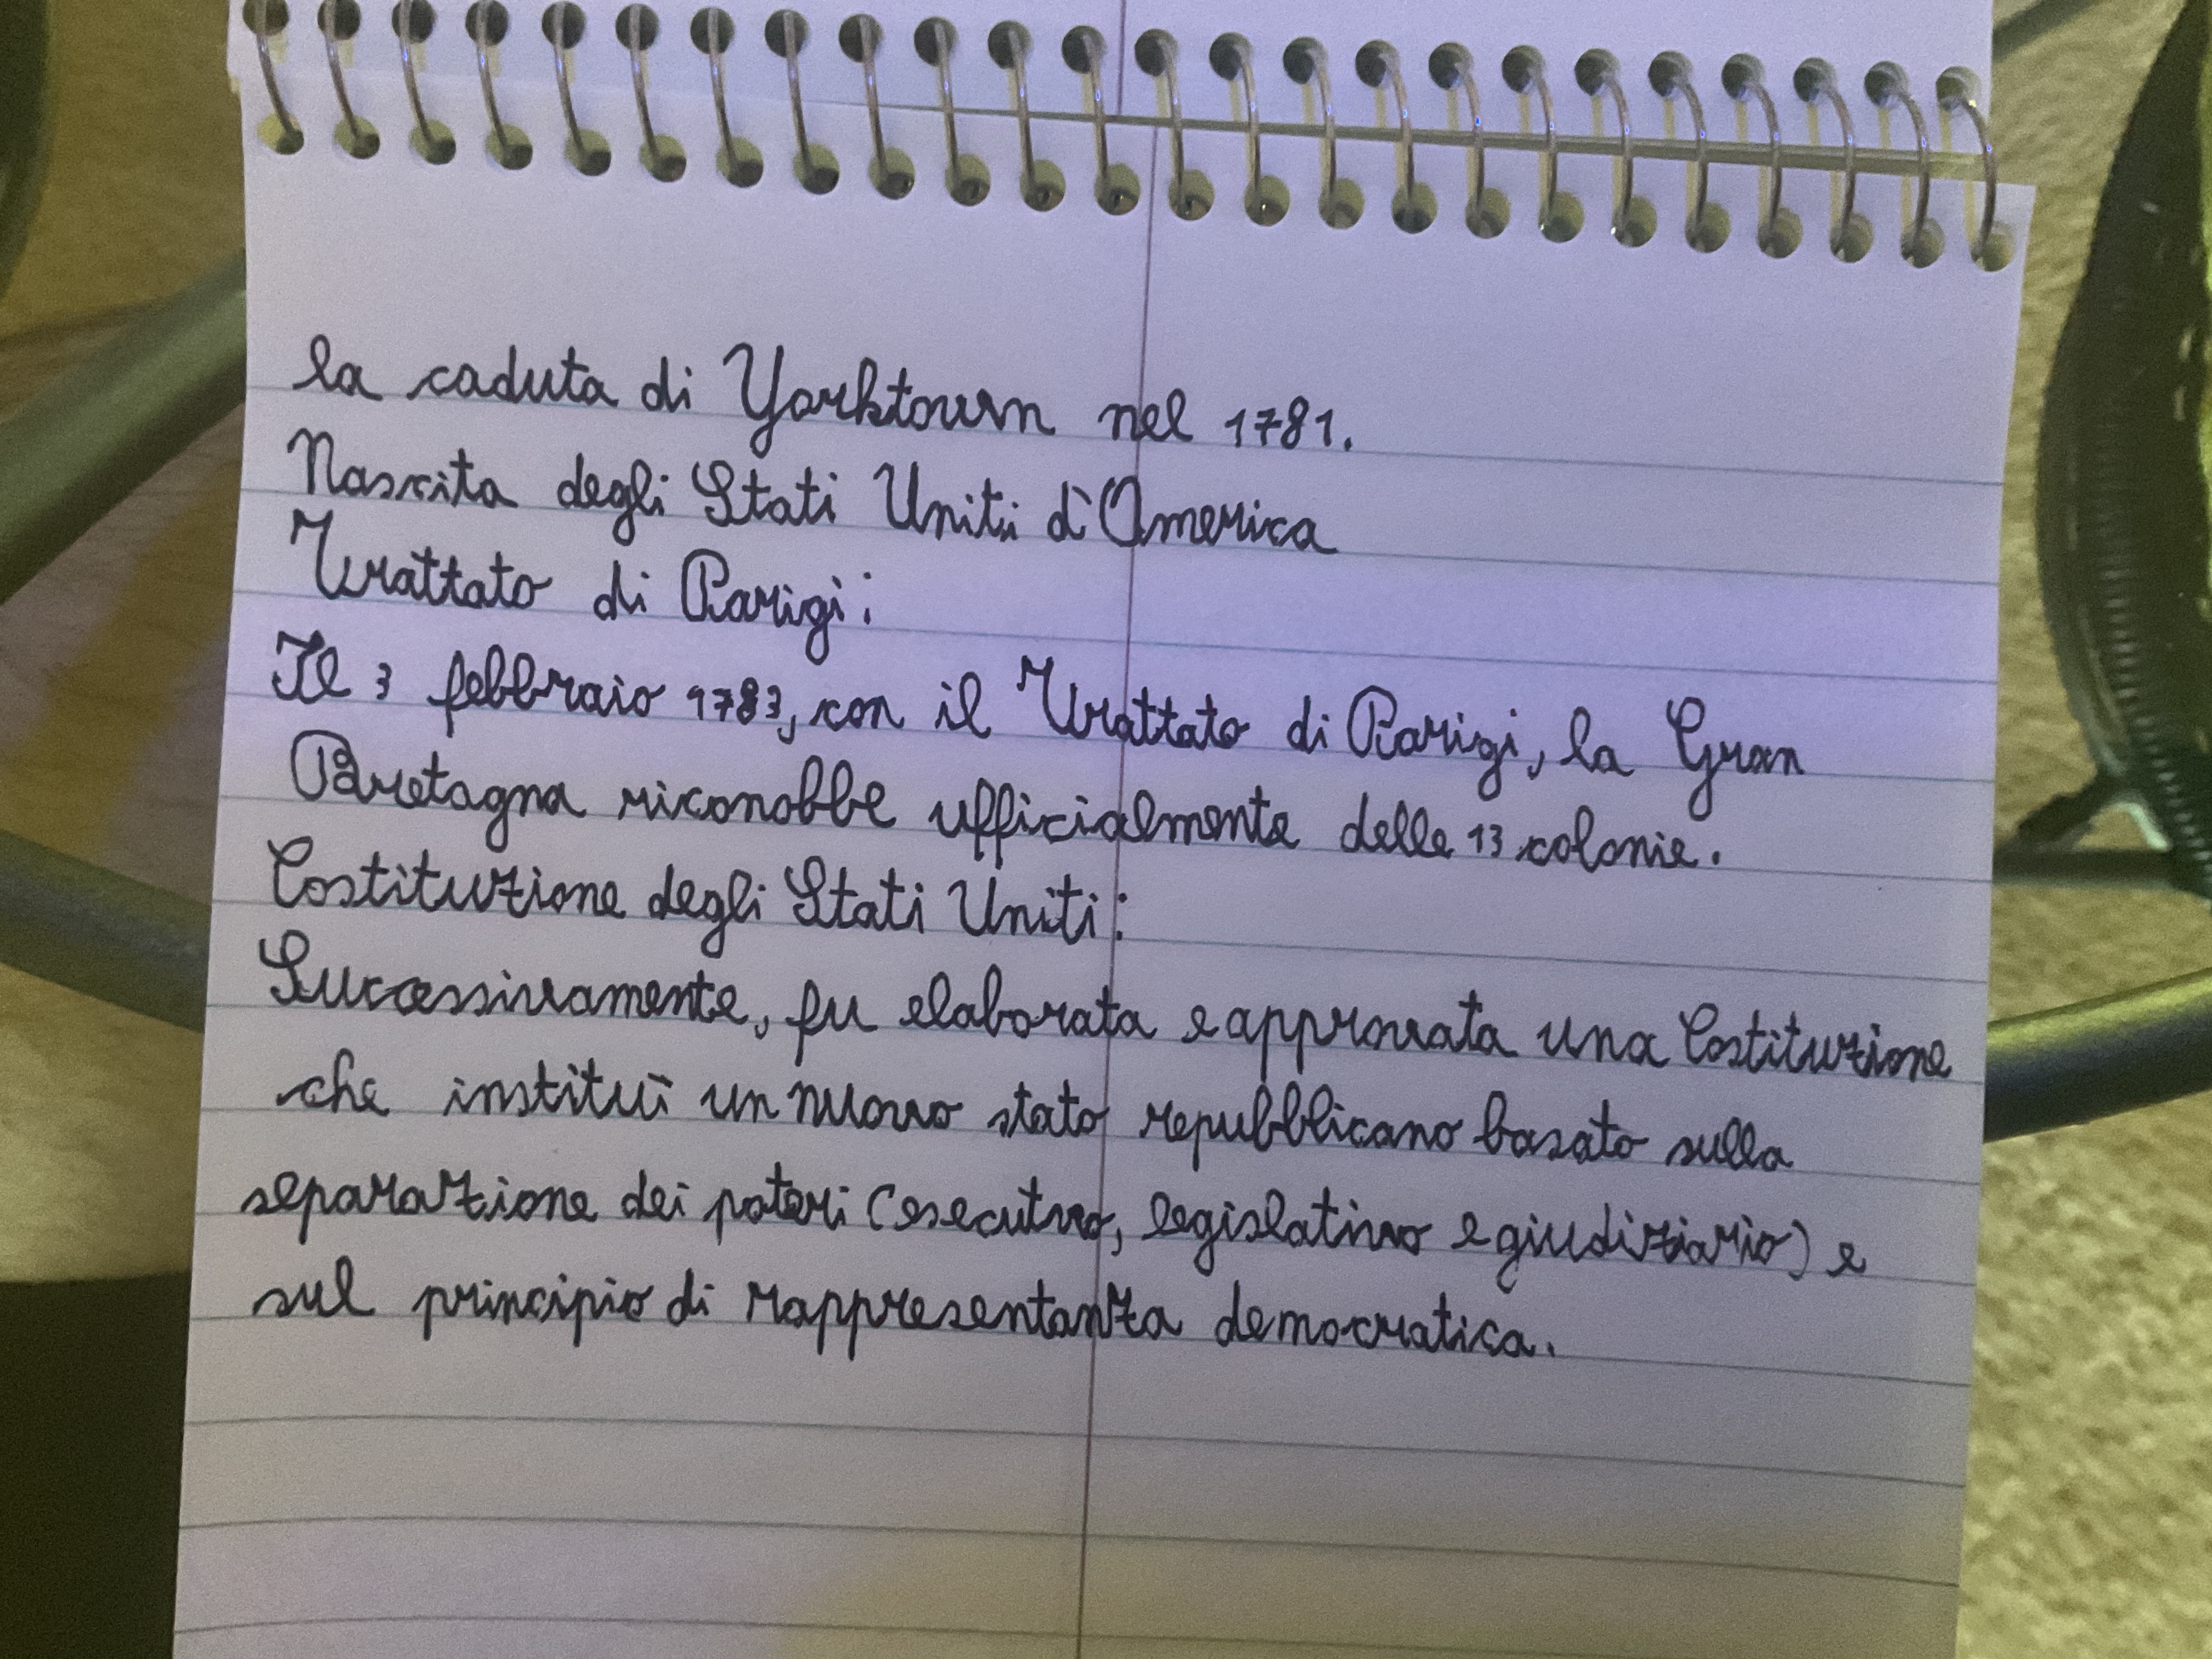 la caduta di Yorktown nel 1781.
Nascita degli Stati Uniti d'America
Trattato di Parigi:
Il 3 febbraio 1783, con il Trattato di Parigi, la Gran
Bretagna riconobbe ufficialmente delle 13 colonie.
Costituzione degli Stati Uniti:
Successivamente, fu elaborata e approvata una Costituzione
che instituì un nuovo stato repubblicano basato sulla
separazione dei poteri (esecutivo, legislativo e giudiziario) e
sul principio di rappresentanza democratica.